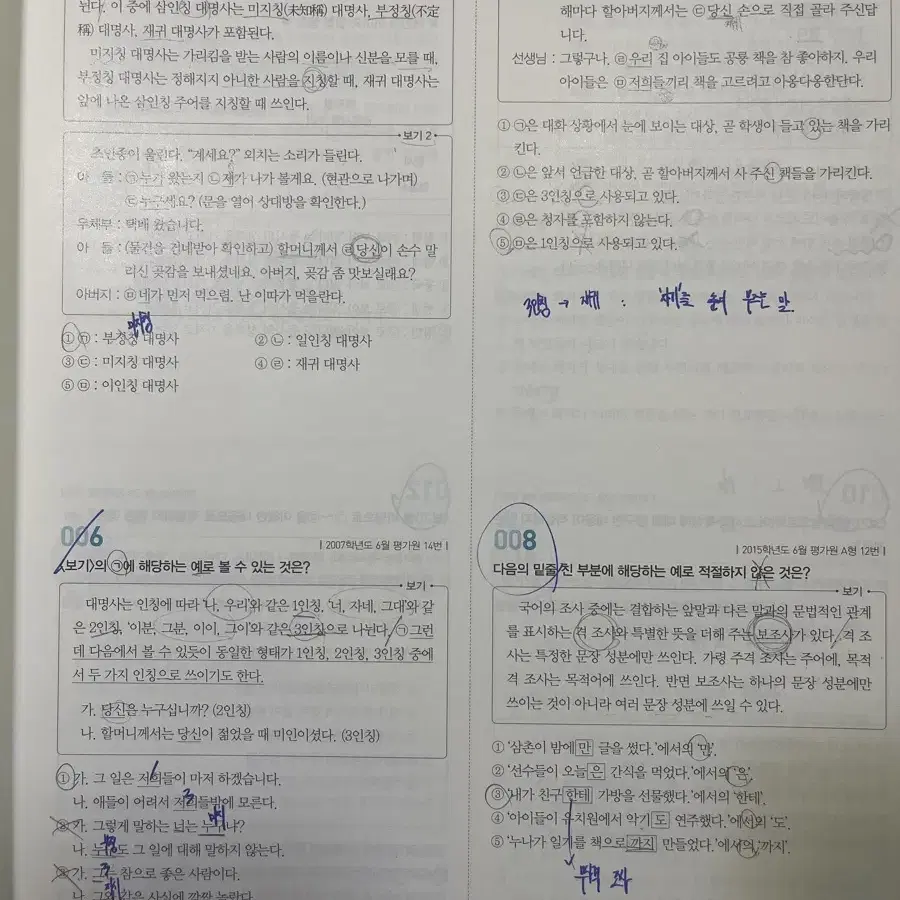 된다. 이 중에 삼인칭 대명사는 미지칭(未知稱) 대명사, 부정칭(不定
稱) 대명사, 재귀 대명사가 포함된다.
미지칭 대명사는 가리킴을 받는 사람의 이름이나 신분을 모를 때,
부정칭 대명사는 정해지지 아니한 사람을 지칭할 때, 재귀 대명사는
앞에 나온 삼인칭 주어를 지칭할 때 쓰인다.
보기 2
초인종이 울린다. “계세요?” 외치는 소리가 들린다.
아 들 : ㉠누가 왔는지 ㉡제가 나가 볼게요. (현관으로 나가며)
㉢누구세요? (문을 열어 상대방을 확인한다.)
우체부 : 택배 왔습니다.
아 들 : (물건을 건네받아 확인하고) 할머니께서 ㉣당신이 손수 말
리신 곶감을 보내셨네요. 아버지, 곶감 좀 맛보실래요?
아버지 : ㉤네가 먼저 먹으렴. 난 이따가 먹을란다.
미지칭
① ㉠ : 부정칭 대명사 ② ㉡ : 일인칭 대명사
③ ㉢ : 미지칭 대명사 ④ ㉣ : 재귀 대명사
⑤ ㉤ : 이인칭 대명사
006
2007학년도 6월 평가원 14번
<보기>의 ㉠에 해당하는 예로 볼 수 있는 것은?
보기
대명사는 인칭에 따라 ‘나, 우리’와 같은 1인칭, ‘너, 자네, 그대’와 같
은 2인칭, ‘이분, 그분, 이이, 그이’와 같은 3인칭으로 나뉜다. ㉠그런
데 다음에서 볼 수 있듯이 동일한 형태가 1인칭, 2인칭, 3인칭 중에
서 두 가지 인칭으로 쓰이기도 한다.
가. 당신은 누구십니까? (2인칭)
나. 할머니께서는 당신이 젊었을 때 미인이셨다. (3인칭)
① 가. 그 일은 저희들이 마저 하겠습니다.
나. 애들이 어려서 저희들밖에 모른다.
② 가. 그렇게 말하는 너는 누구냐?
나. 누구도 그 일에 대해 말하지 않는다.
가. 그는 참으로 좋은 사람이다.
나. 그와 같은 사실에 깜짝 놀랐다.
해마다 할아버지께서는 ㉢당신 손으로 직접 골라 주신답
니다.
선생님 : 그렇구나. ㉣우리 집 아이들도 공룡 책을 참 좋아하지. 우리
아이들은 ㉤저희들끼리 책을 고르려고 아웅다웅한단다.
① ㉠은 대화 상황에서 눈에 보이는 대상, 곧 학생이 들고 있는 책을 가리
킨다.
② ㉡은 앞서 언급한 대상, 곧 할아버지께서 사 주신 책들을 가리킨다.
③ ㉢은 3인칭으로 사용되고 있다.
④ ㉣은 청자를 포함하지 않는다.
⑤ ㉤은 1인칭으로 사용되고 있다.
3인칭 → 재귀 :
008
2015학년도 6월 평가원 A형 12번
다음의 밑줄 친 부분에 해당하는 예로 적절하지 않은 것은?
보기
국어의 조사 중에는 결합하는 앞말과 다른 말과의 문법적인 관계
를 표시하는 격 조사와 특별한 뜻을 더해 주는 보조사가 있다. 격 조
사는 특정한 문장 성분에만 쓰인다. 가령 주격 조사는 주어에, 목적
격 조사는 목적어에 쓰인다. 반면 보조사는 하나의 문장 성분에만
쓰이는 것이 아니라 여러 문장 성분에 쓰일 수 있다.
① ‘삼촌이 밤에만 글을 썼다.’에서의 ‘만’.
② ‘선수들이 오늘은 간식을 먹었다.’에서의 ‘은’.
③ ‘내가 친구한테 가방을 선물했다.’에서의 ‘한테’.
④ ‘아이들이 유치원에서 악기도 연주했다.’에서의 ‘도’.
⑤ ‘누나가 일기를 책으로까지 만들었다.’에서의 ‘까지’.
부격 조사